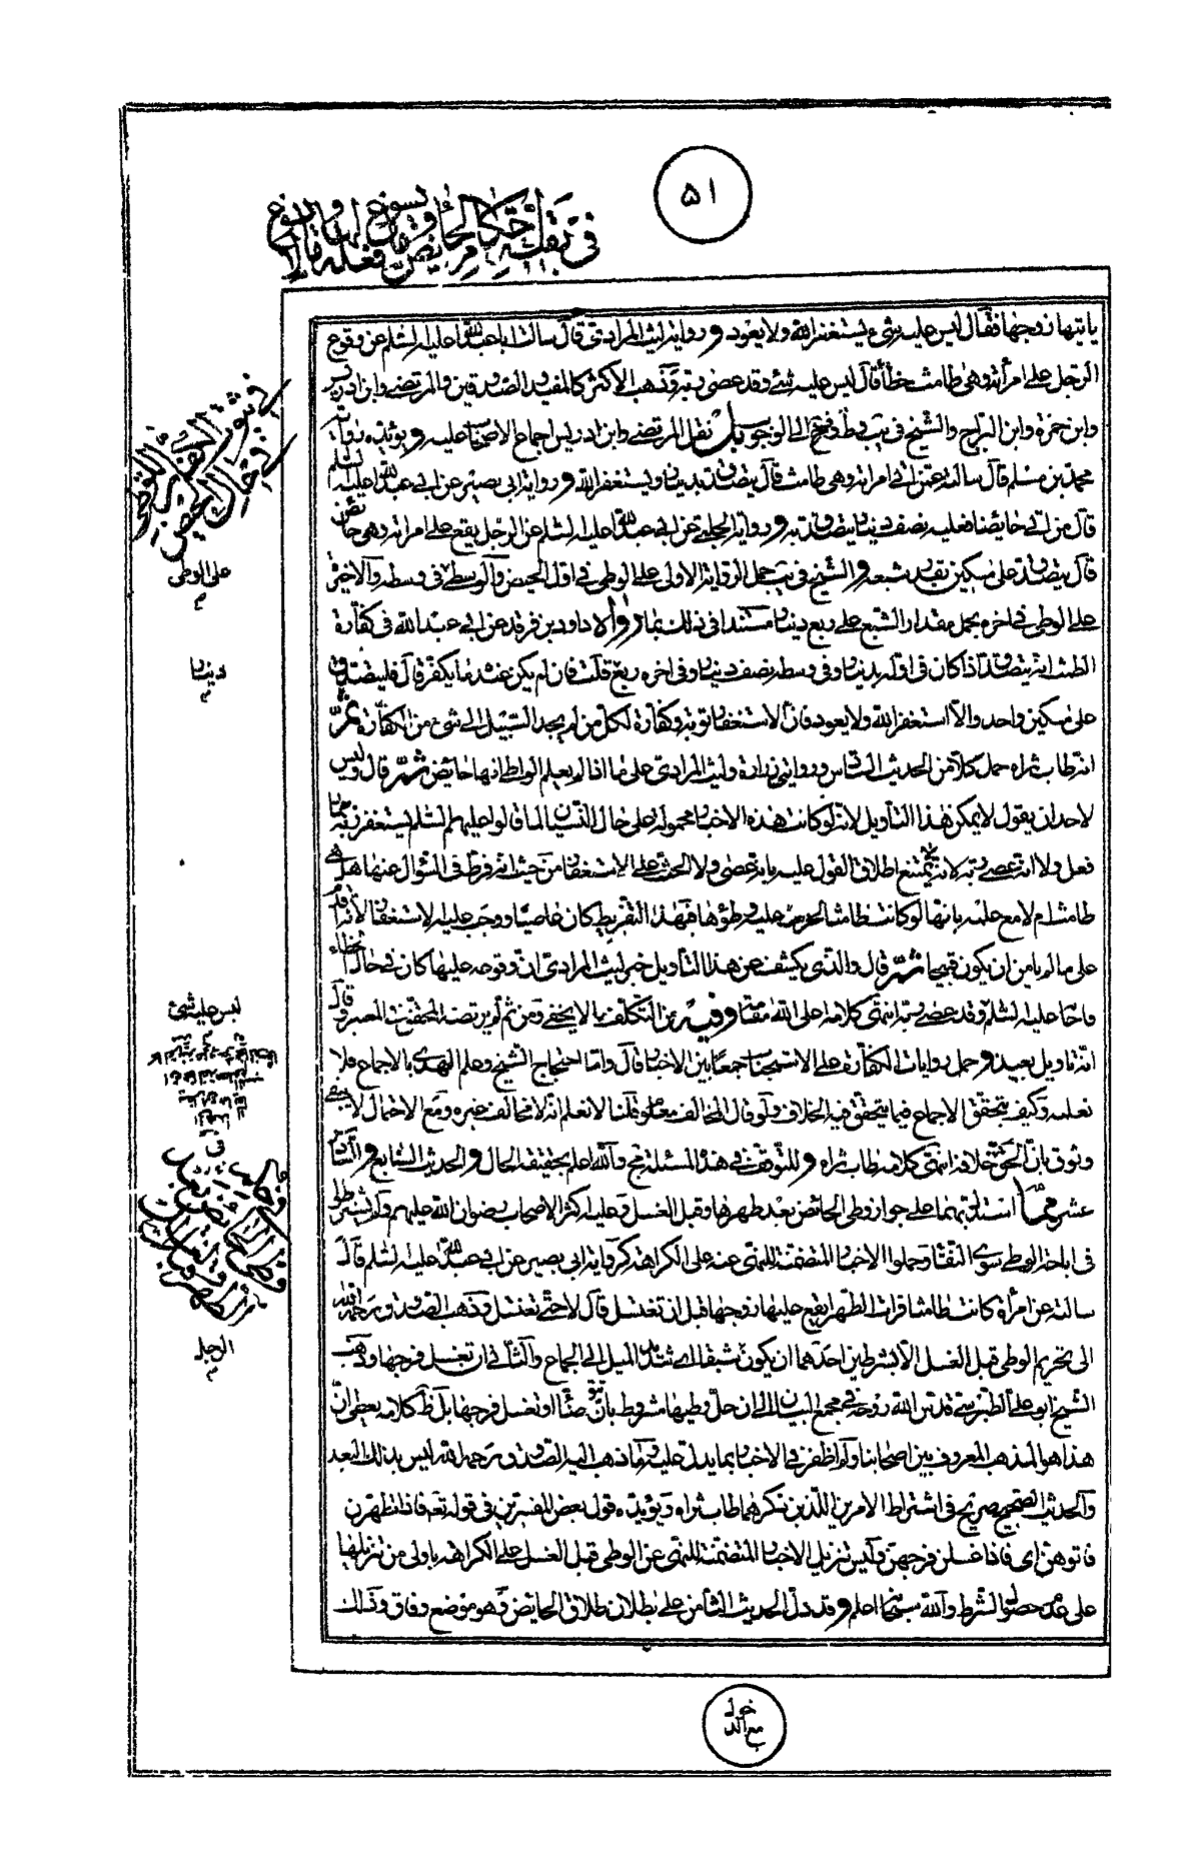 ٥١
في بقية أحكام الحائض وما يسوغ لها فعله وما لا يسوغ
ياتيها زوجها فقال ليس عليه شيء يستغفر الله ولا يعود ورواية ليث المرادي قال سالت ابا عبد الله عليه السلم عن وقوع
الرجل على امرأته وهي طامث خطأ قال ليس عليه شئ وقد عصى ربه وذهب الاكثر كالمفيد والصدوقين والمرتضى وابن ادريس
وابن حمزة وابن البراج والشيخ في يب وط وفتح الى الوجوب بل نقل المرتضى وابن ادريس اجماع الاصحاب عليه ويؤيده رواية
محمد بن مسلم قال سالته عمن اتى امراته وهي طامث قال يتصدق بدينار ويستغفر الله ورواية ابي بصير عن ابي عبد الله عليه السلم
قال من اتى حايضا فعليه نصف دينار يتصدق به ورواية الحلبي عن ابي عبد الله عليه السلم عن الرجل يقع على امراته وهي حائض
قال يتصدق على مسكين بقدر شبعه والشيخ في يب حمل الرواية الاولى على الوطي في اول الحيض والوسطى في وسطه والاخيرة
على الوطي في اخره بحمل مقدار الشبع على ربع دينار مستندا في ذلك بما رواه داود بن فرقد عن ابي عبد الله في كفارة
الطمث انه يتصدق اذا كان في اوله بدينار وفي وسطه نصف دينار وفي اخره ربع قلت فان لم يكن عنده ما يكفر قال فليتصدق
على مسكين واحد والا استغفر الله ولا يعود فان الاستغفار توبة وكفارة لكل من لم يجد السبيل الى شيء من الكفارة ثم
انه طاب ثراه حمل كلا من الحديث السادس وروايتي زرارة وليث المرادي على ما اذا لم يعلم الواطي انها حايض ثم قال وليس
لاحد ان يقول لا يمكن هذا التأويل لانه لو كانت هذه الاخبار محمولة على حال النسيان لما قالوا عليهم السلم يستغفر ربه مما
فعل ولا انه عصى ربه لانه لا يمتنع اطلاق القول عليه بانه عصى ولا الحث على الاستغفار من حيث انه فرط في السؤال عنها هل هي
طامث ام لا مع علمه بانها لو كانت طامثا لحرمت عليه وطؤها فبهذا التفريط كان عاصيا ووجب عليه الاستغفار لانه اقدم
على ما لم يامن ان يكون قبيحا ثم قال والذي يكشف عن هذا التأويل خبر ليث المرادي ان وقوعه عليها كان في حال الخطاء
فاجابه عليه السلم وقد عصى ربه انتهى كلامه اعلى الله مقامه وفيه من التكلف ما لا يخفى ومن ثم لم يرتضه المحقق في المعتبر وقال
انه تاويل بعيد وحمل روايات الكفارة على الاستحباب جمعا بين الاخبار قال واما احتجاج الشيخ وعلم الهدى بالاجماع فلا
نعلمه وكيف يتحقق الاجماع فيما يتحقق فيه الخلاف ولو قال المخالف معلوم قلنا لا نعلم انه لا مخالف غيره ومع الاحتمال لا يبقى
وثوق بان الحق خلافه انتهى كلامه طاب ثراه وللتوقف في هذه المسئلة مجال والله اعلم بحقيقة الحال والحديث السابع والسادس
عشر مما استدل بهما على جواز وطي الحائض بعد طهرها وقبل الغسل وعليه اكثر الاصحاب رضوان الله عليهم ولم يشترطوا
في اباحة الوطي سوى النقاء وحملوا الاخبار المتضمنة للنهي عنه على الكراهة كرواية ابي بصير عن ابي عبد الله عليه السلم قال
سالته عن امرأة كانت طامثا فرات الطهر ايقع عليها زوجها قبل ان تغتسل قال لا حتى تغتسل وذهب الصدوق رحمه الله
الى تحريم الوطي قبل الغسل الا بشرطين احدهما ان يكون شبقا اى شديد الميل الى الجماع والثاني ان تغسل فرجها وذهب
الشيخ ابو علي الطبرسي قدس الله روحه في مجمع البيان الى ان حل وطيها مشروط بان تتوضأ او تغسل فرجها بل ظ كلامه يعطي ان
هذا هو المذهب المعروف بين اصحابنا ولم اظفر في الاخبار بما يدل عليه وما ذهب اليه الصدوق رحمه الله ليس بذلك البعيد
والحديث الصحيح صريح في اشتراط الامرين اللذين ذكرهما طاب ثراه ويؤيده قول بعض المفسرين في قوله تعه فاذا تطهرن
فاتوهن اى فاذا غسلن فرجهن وليس تنزيل الاخبار المتضمنة للنهي عن الوطي قبل الغسل على الكراهة باولى من تنزيلها
على عدم حصول الشرط والله سبحانه اعلم وقد دل الحديث الثامن على بطلان طلاق الحايض وهو موضع وفاق وذلك
على الوطي م
دينار م
ليس عليه شئ
الرجل م